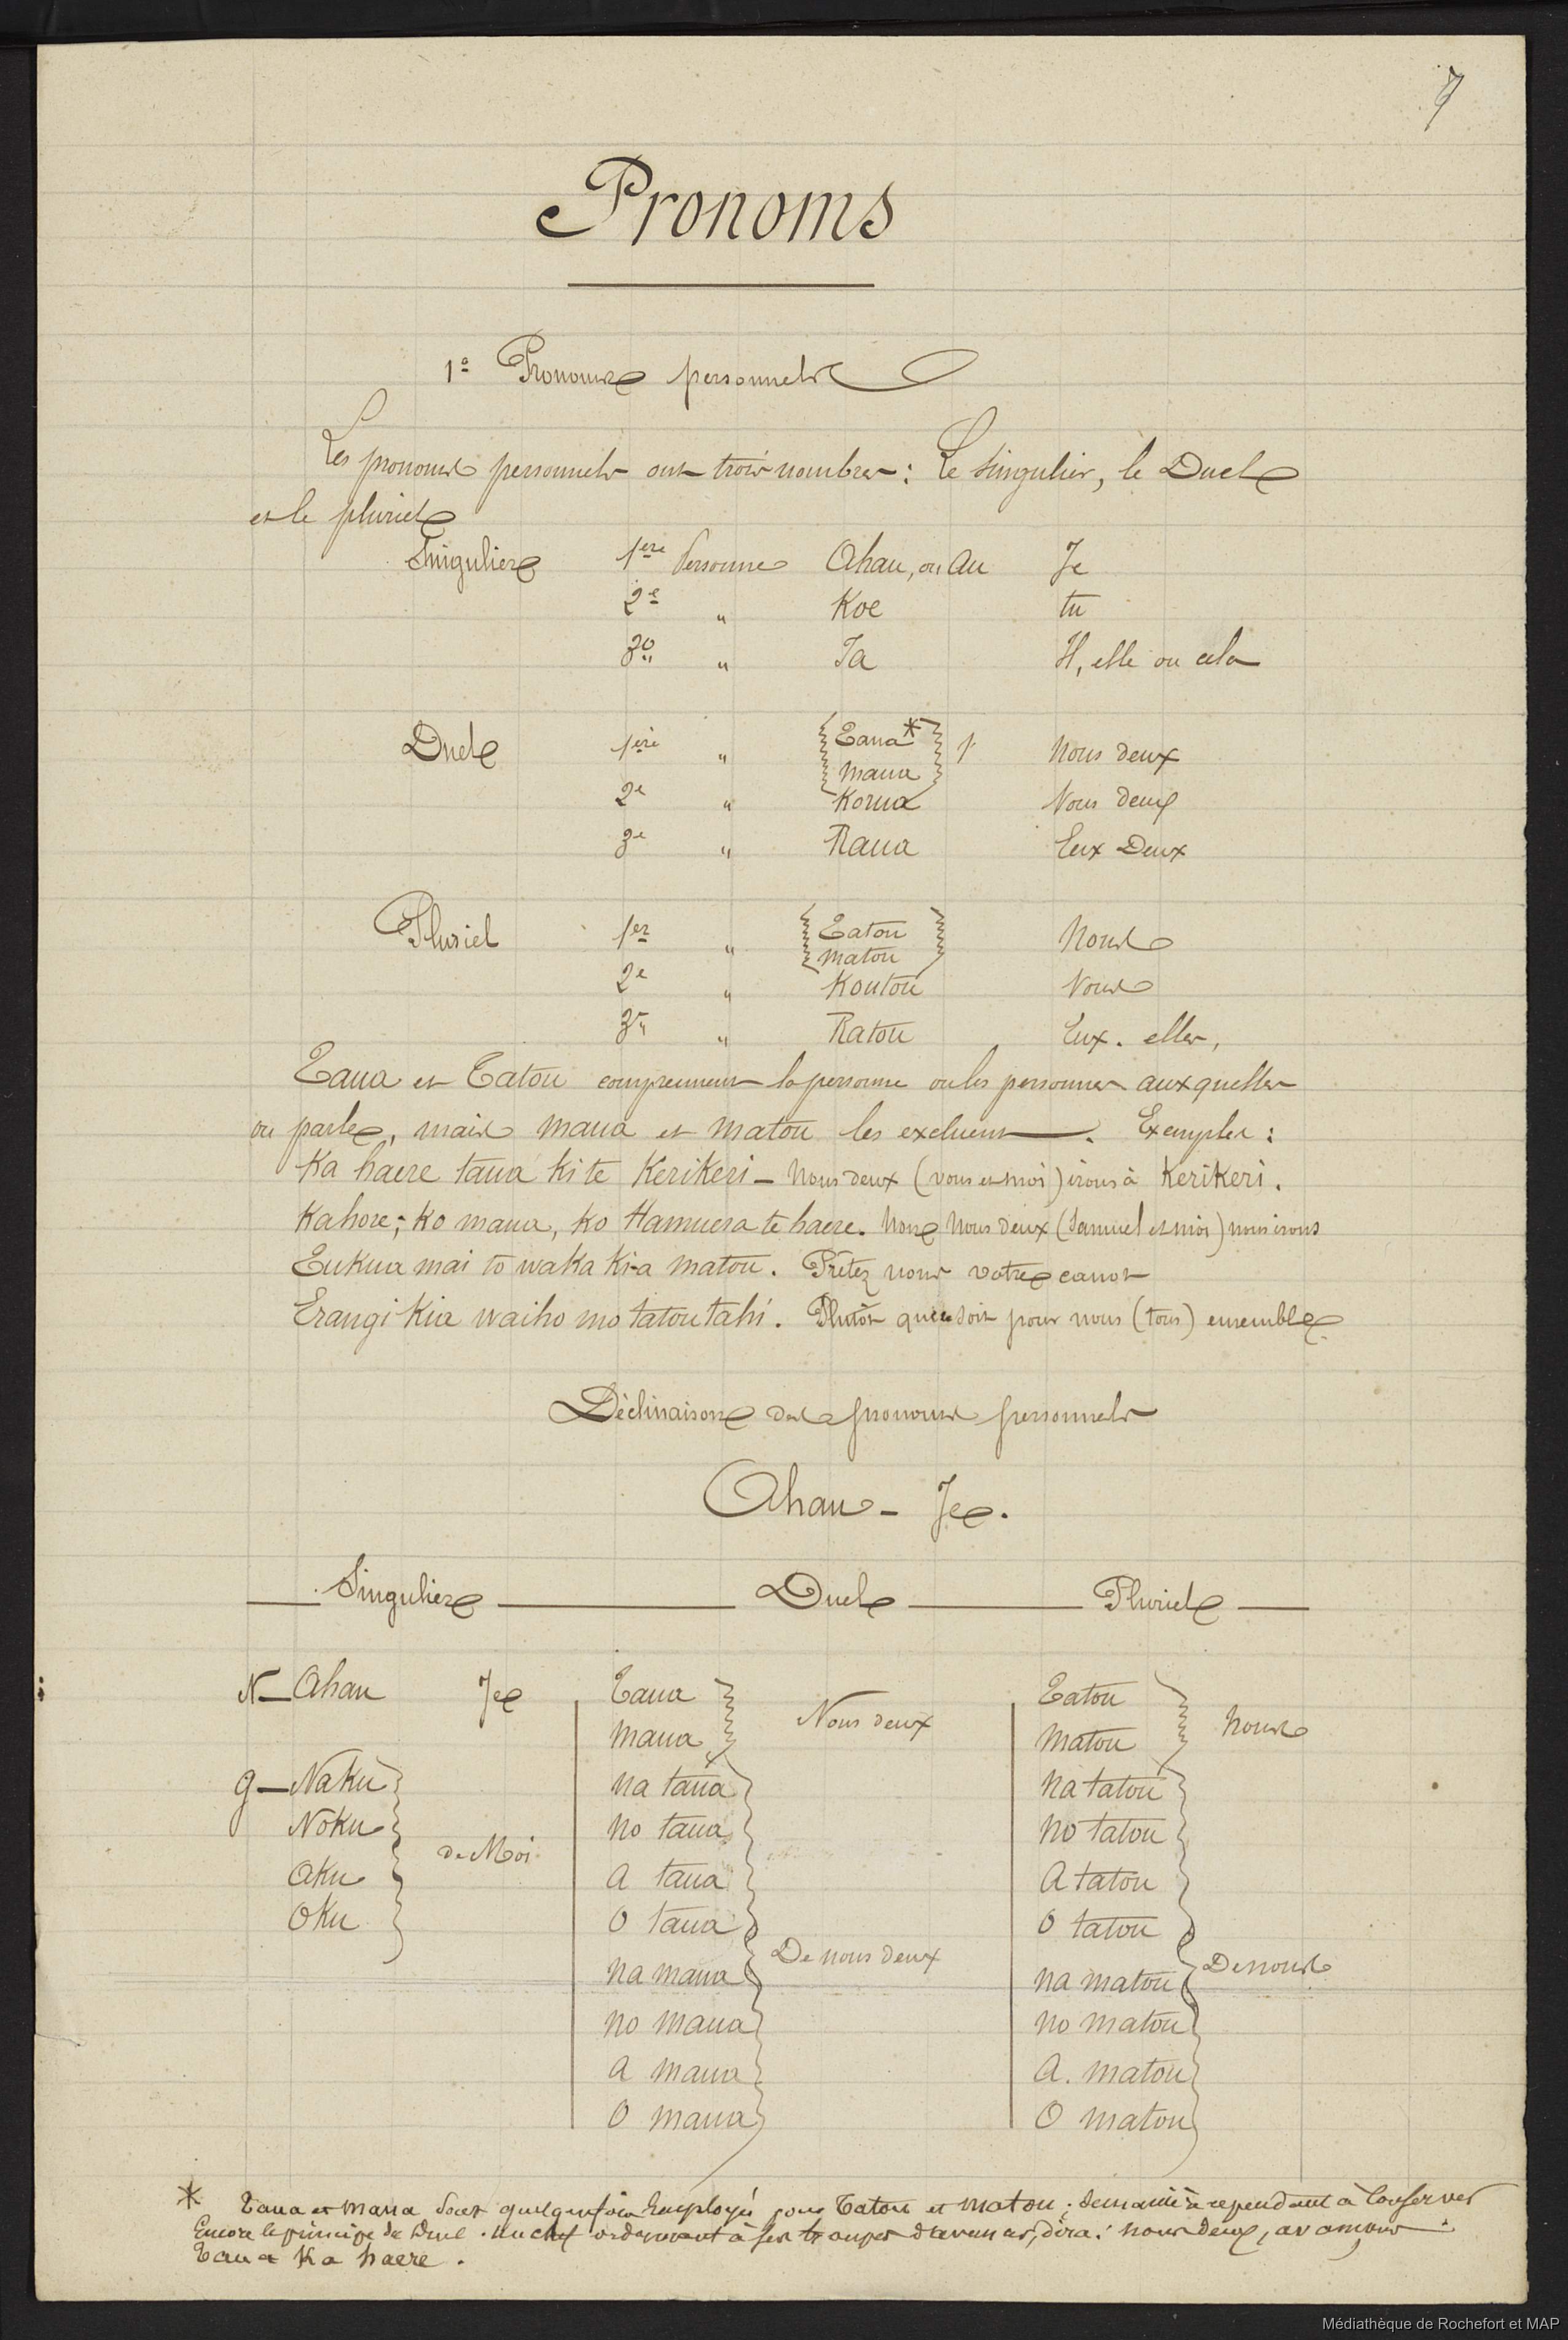 7
Pronoms
1º Pronoms personnels
Les pronoms personnels ont trois nombres : Le Singulier, le Duel
et le pluriel
Singulier 1ère Personne Ahau, ou Au Je
2e " Koe tu
3e " Ia Il, elle ou cela
Duel 1ère " Taua* 1 Nous deux
maua
2e " Korua Vous deux
3e " Raua Eux Deux
Pluriel 1er " Tatou Nous
matou
2e " Koutou Vous
3e " Ratou Eux. elles,
Taua et Tatou comprennent la personne ou les personnes auxquelles
on parle, mais maua et matou les excluent. Exemples :
Ka haere taua ki te Kerikeri – Nous deux (vous et moi) irons à Kerikeri.
Kahore; Ko maua, ko Hamuera te haere. Non Nous deux (Samuel et moi) nous irons
Tukua mai to waka ki-a matou. Prêtez nous votre canot
Erangi Kia waiho mo tatou tahi. Plutôt que ce soit pour nous (tous) ensemble.
Déclinaison des pronoms personnels
Ahau – Je.
Singulier Duel Pluriel
N – Ahau Je Taua Nous deux Tatou Nous
maua matou
g – Naku na taua na tatou
Noku de Moi no taua no tatou
Aku A taua A tatou
Oku O taua O tatou
na maua De nous deux na matou De nous
no maua no matou
A maua A. matou
O maua O matou
* Taua et maua sont quelquefois Employés pour Tatou et matou ; de manière cependant à conserver
Encore le principe du Duel. un chef ordonnant à ses troupes d'avancer, dira : nous deux, avançons.
Taua Ka haere.
Médiathèque de Rochefort et MAP